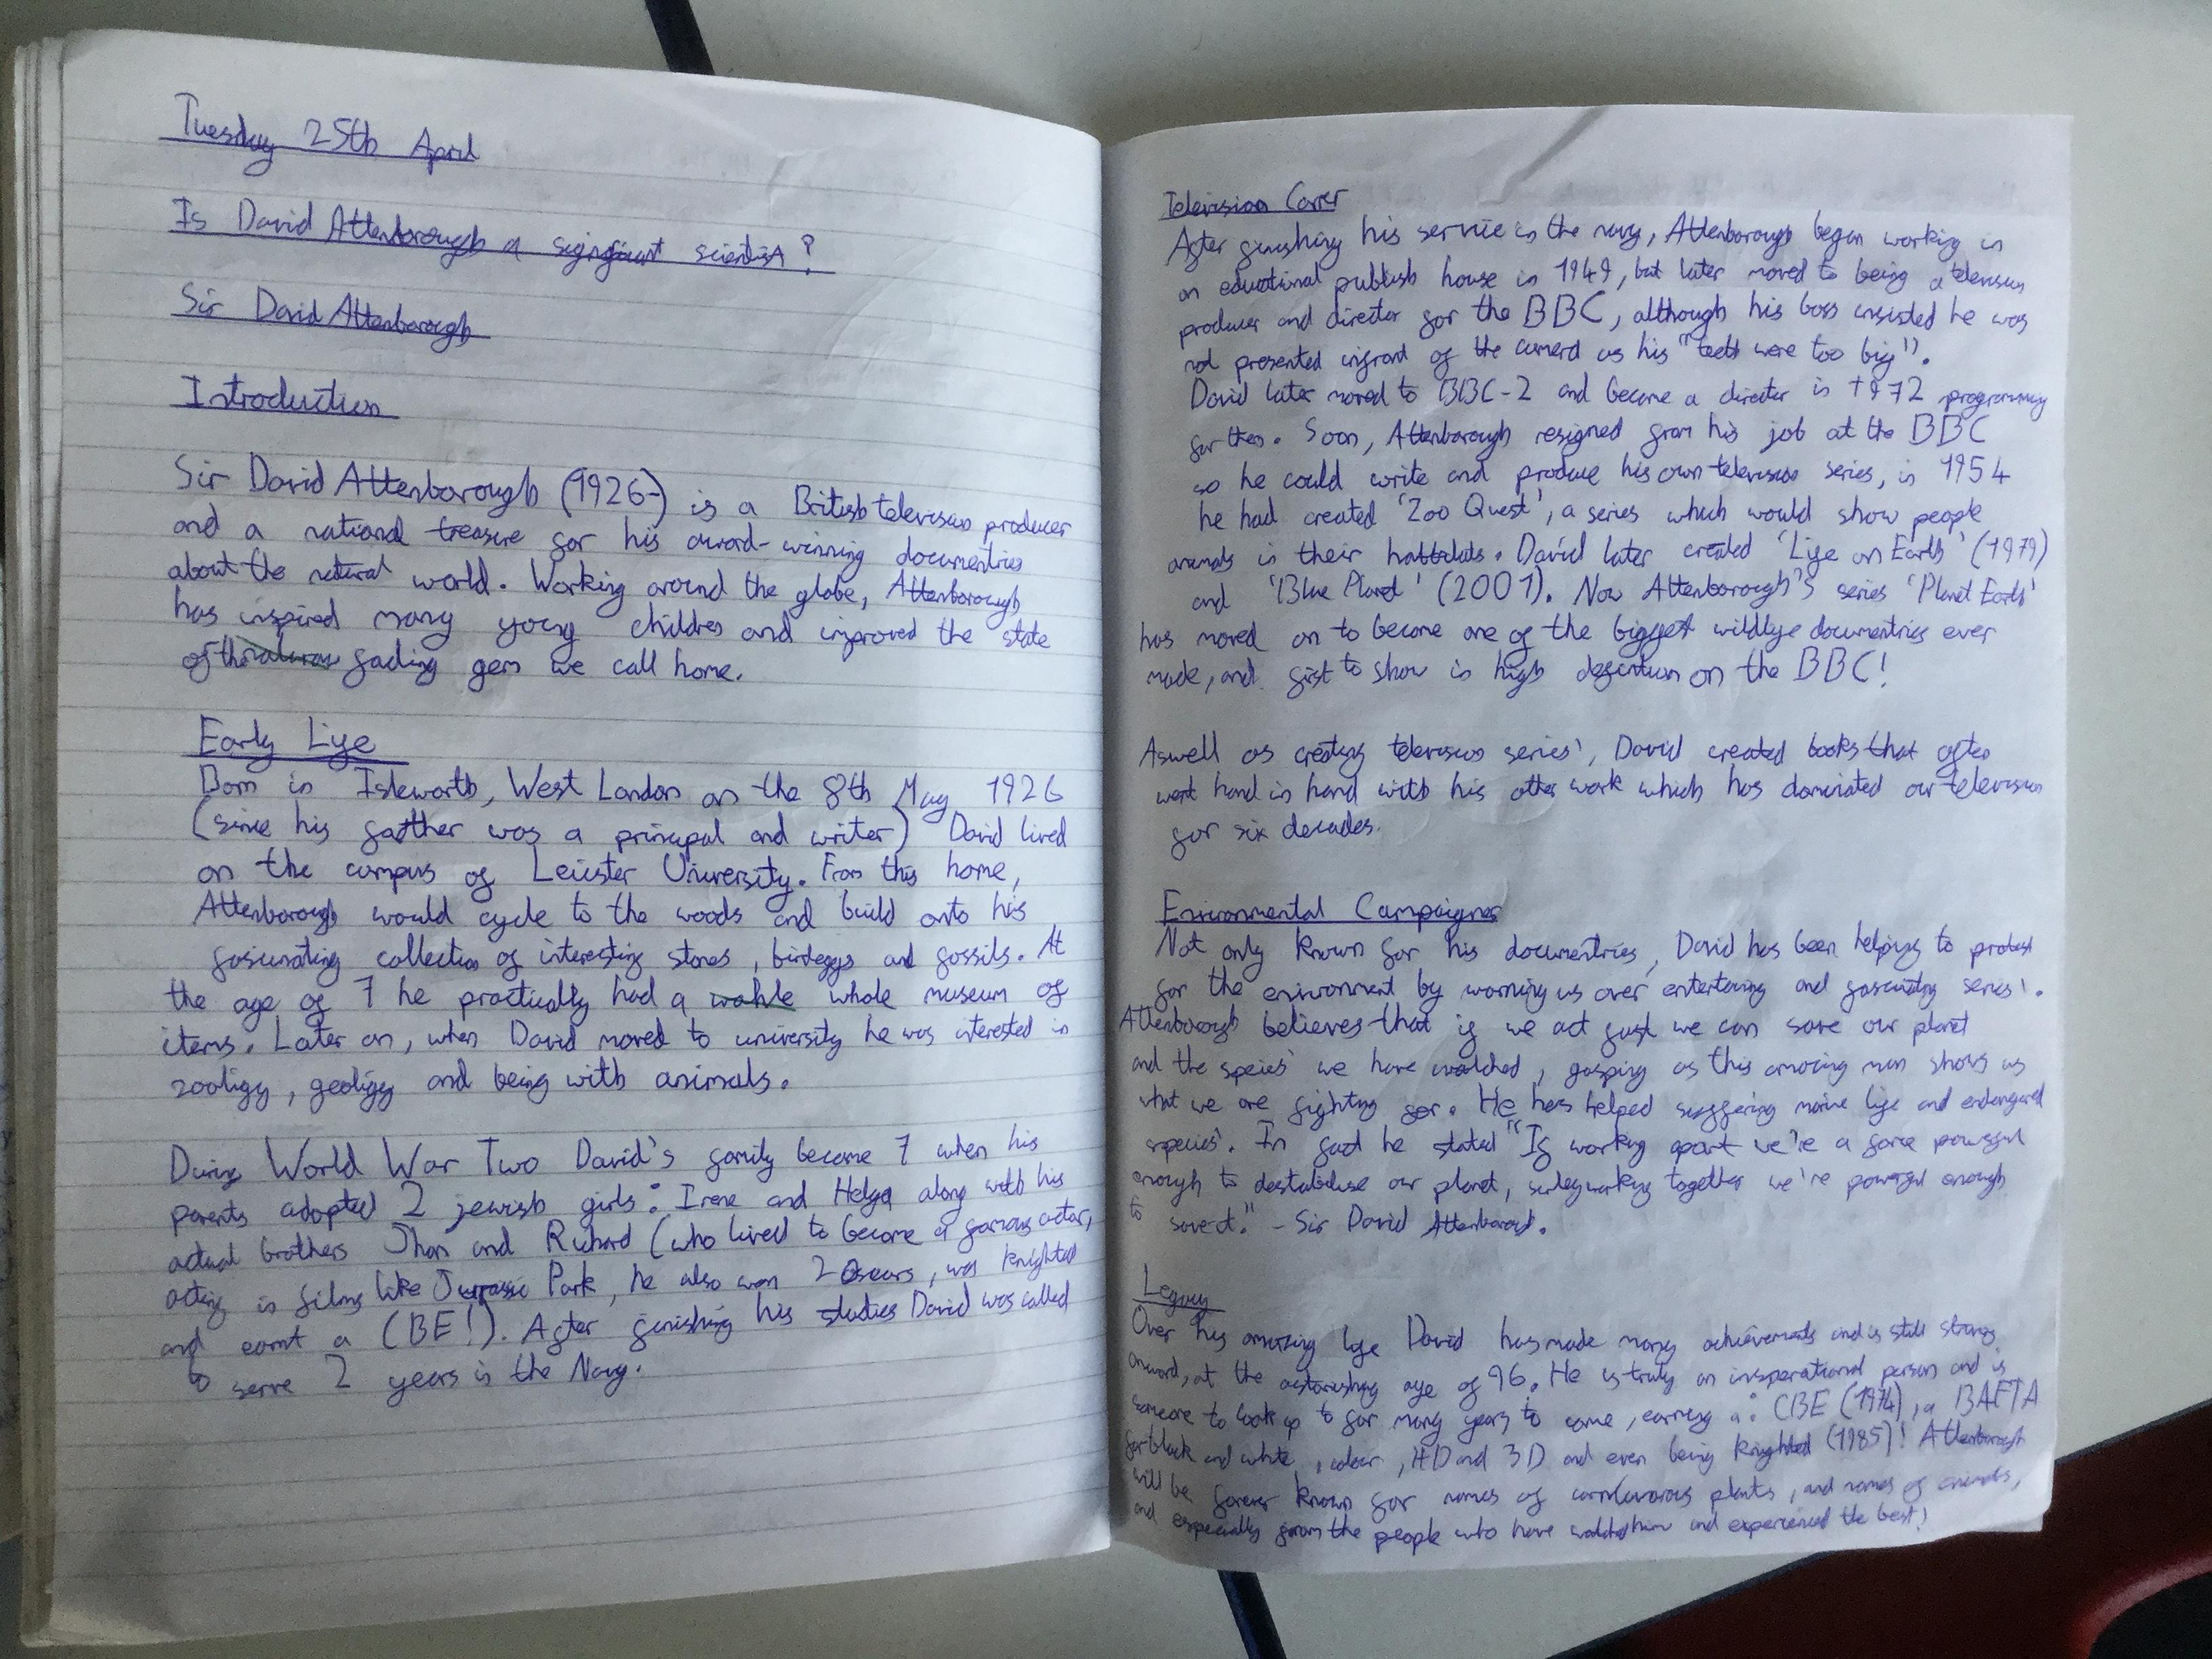 Tuesday 25th April
Is David Attenborough a significant scientist?
Sir David Attenborough
Introduction
Sir David Attenborough (1926-) is a British television producer
and a national treasure for his award-winning documentries
about the natural world. Working around the globe, Attenborough
has inspired many young children and improved the state
of the fading gem we call home.
Early Life
Born in Isleworth, West London on the 8th May 1926
(since his father was a principal and writer) David lived
on the campus of Leicster University. From this home,
Attenborough would cycle to the woods and build onto his
fasinating collection of interesting stones, birdeggs and fossils. At
the age of 7 he practically had a wahle whole museum of
items. Later on, when David moved to university he was interested in
zooligy, geoligy and being with animals.
During World War Two David's family became 7 when his
parents adopted 2 jewish girls: Irene and Helga along with his
actual brothers Jhon and Richard (who lived to become a famous actor,
acting in films like Jurrassic Park, he also won 2 Oscars, was knighted
and earnt a (BE!). After finishing his studies David was called
to serve 2 years in the Navy.
Television Carrer
After finishing his service in the navy, Attenborough began working in
an educational publish house in 1949, but later moved to being a television
producer and director for the BBC, although his boss insisted he was
not presented infront of the camera as his "teeth were too big".
David later moved to BBC-2 and became a director in 1972 programming
for them. Soon, Attenborough resigned from his job at the BBC
so he could write and produce his own television series, in 1954
he had created 'Zoo Quest', a series which would show people
animals in their habitats. David later created 'Life on Earth' (1979)
and 'Blue Planet' (2001). Now Attenborough's series 'Planet Earth'
has moved on to become one of the biggest wildlife documentries ever
made, and first to show in high defenition on the BBC!
Aswell as creating television series', David created books that often
went hand in hand with his other work which has dominated our television
for six decades.
Environmental Campaigner
Not only known for his documentries, David has been helping to protest
for the environment by warning us over entertaining and fascinating series'.
Attenborough believes that if we act fast we can save our planet
and the species' we have watched, gasping as this amazing man shows us
what we are fighting for. He has helped suffering marine life and endangered
species'. In fact he stated "If working apart we're a force powerful
enough to destabilise our planet, surley working together we're powerful enough
to save it." - Sir David Attenborough.
Legacy
Over his amazing life David has made many achievements and is still strong
onward, at the astonishing age of 96. He is truly an insperational person and is
someone to look up to for many years to come, earning a: CBE (1974), a BAFTA
for black and white, colour, HD and 3D and even being knighted (1985)! Attenborough
will be forever known for names of carnivorous plants, and names of animals,
and especially from the people who have watched him and experienced the best!